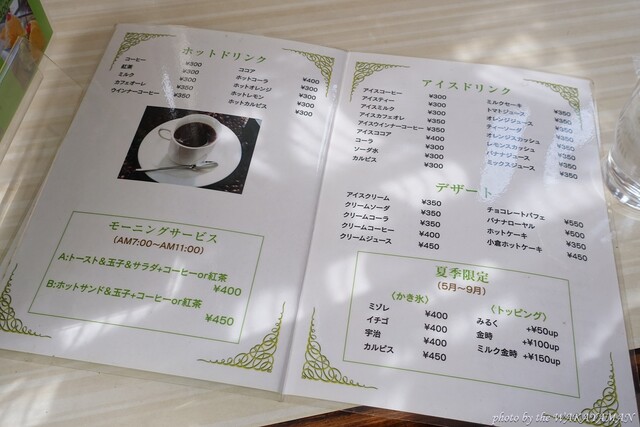 ホットドリンク
コーヒー ¥300
紅茶 ¥300
ミルク ¥300
カフェオーレ ¥350
ウインナーコーヒー ¥350
ココア ¥400
ホットコーラ ¥300
ホットオレンジ ¥300
ホットレモン ¥300
ホットカルピス ¥300
モーニングサービス
(AM7:00〜AM11:00)
A:トースト&玉子&サラダ+コーヒーor紅茶
¥400
B:ホットサンド&玉子+コーヒーor紅茶
¥450
アイスドリンク
アイスコーヒー ¥300
アイスティー ¥300
アイスミルク ¥300
アイスカフェオレ ¥350
アイスウインナーコーヒー ¥350
アイスココア ¥400
コーラ ¥300
ソーダ水 ¥300
カルピス ¥300
ミルクセーキ ¥350
トマトジュース ¥350
オレンジジュース ¥350
ティーソーダ ¥350
オレンジスカッシュ ¥350
レモンスカッシュ ¥350
バナナジュース ¥350
ミックスジュース ¥350
デザート
アイスクリーム ¥350
クリームソーダ ¥350
クリームコーラ ¥350
クリームコーヒー ¥400
クリームジュース ¥450
チョコレートパフェ ¥550
バナナローヤル ¥500
ホットケーキ
小倉ホットケーキ ¥350
夏季限定
(5月〜9月)
〈かき氷〉
ミゾレ ¥400
イチゴ ¥400
宇治 ¥400
カルピス ¥450
〈トッピング〉
みるく +¥50up
金時 +¥100up
ミルク金時 +¥150up
photo by the WAKAYAMAN